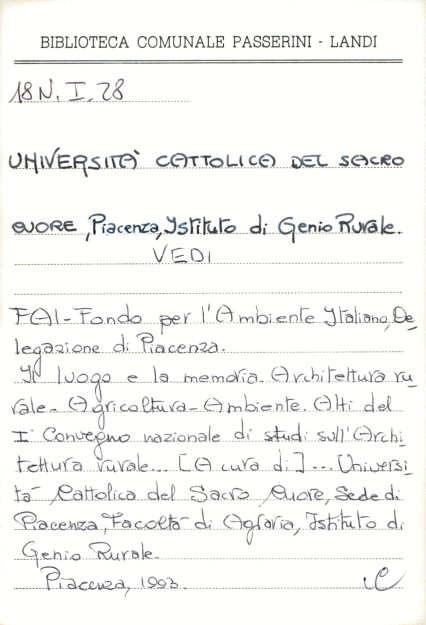 BIBLIOTECA COMUNALE PASSERINI - LANDI
18 N. I. 28
UNIVERSITÀ CATTOLICA DEL SACRO
CUORE, Piacenza, Istituto di Genio Rurale.
VEDI
FAI - Fondo per l'Ambiente Italiano, De
legazione di Piacenza.
Il luogo e la memoria. Architettura ru_
rale - Agricoltura - Ambiente. Atti del
I° Convegno nazionale di studi sull'Archi_
tettura rurale... [A cura di] ... Universi_
tà Cattolica del Sacro Cuore, Sede di
Piacenza, Facoltà di Agraria, Istituto di
Genio Rurale.
Piacenza, 1993.